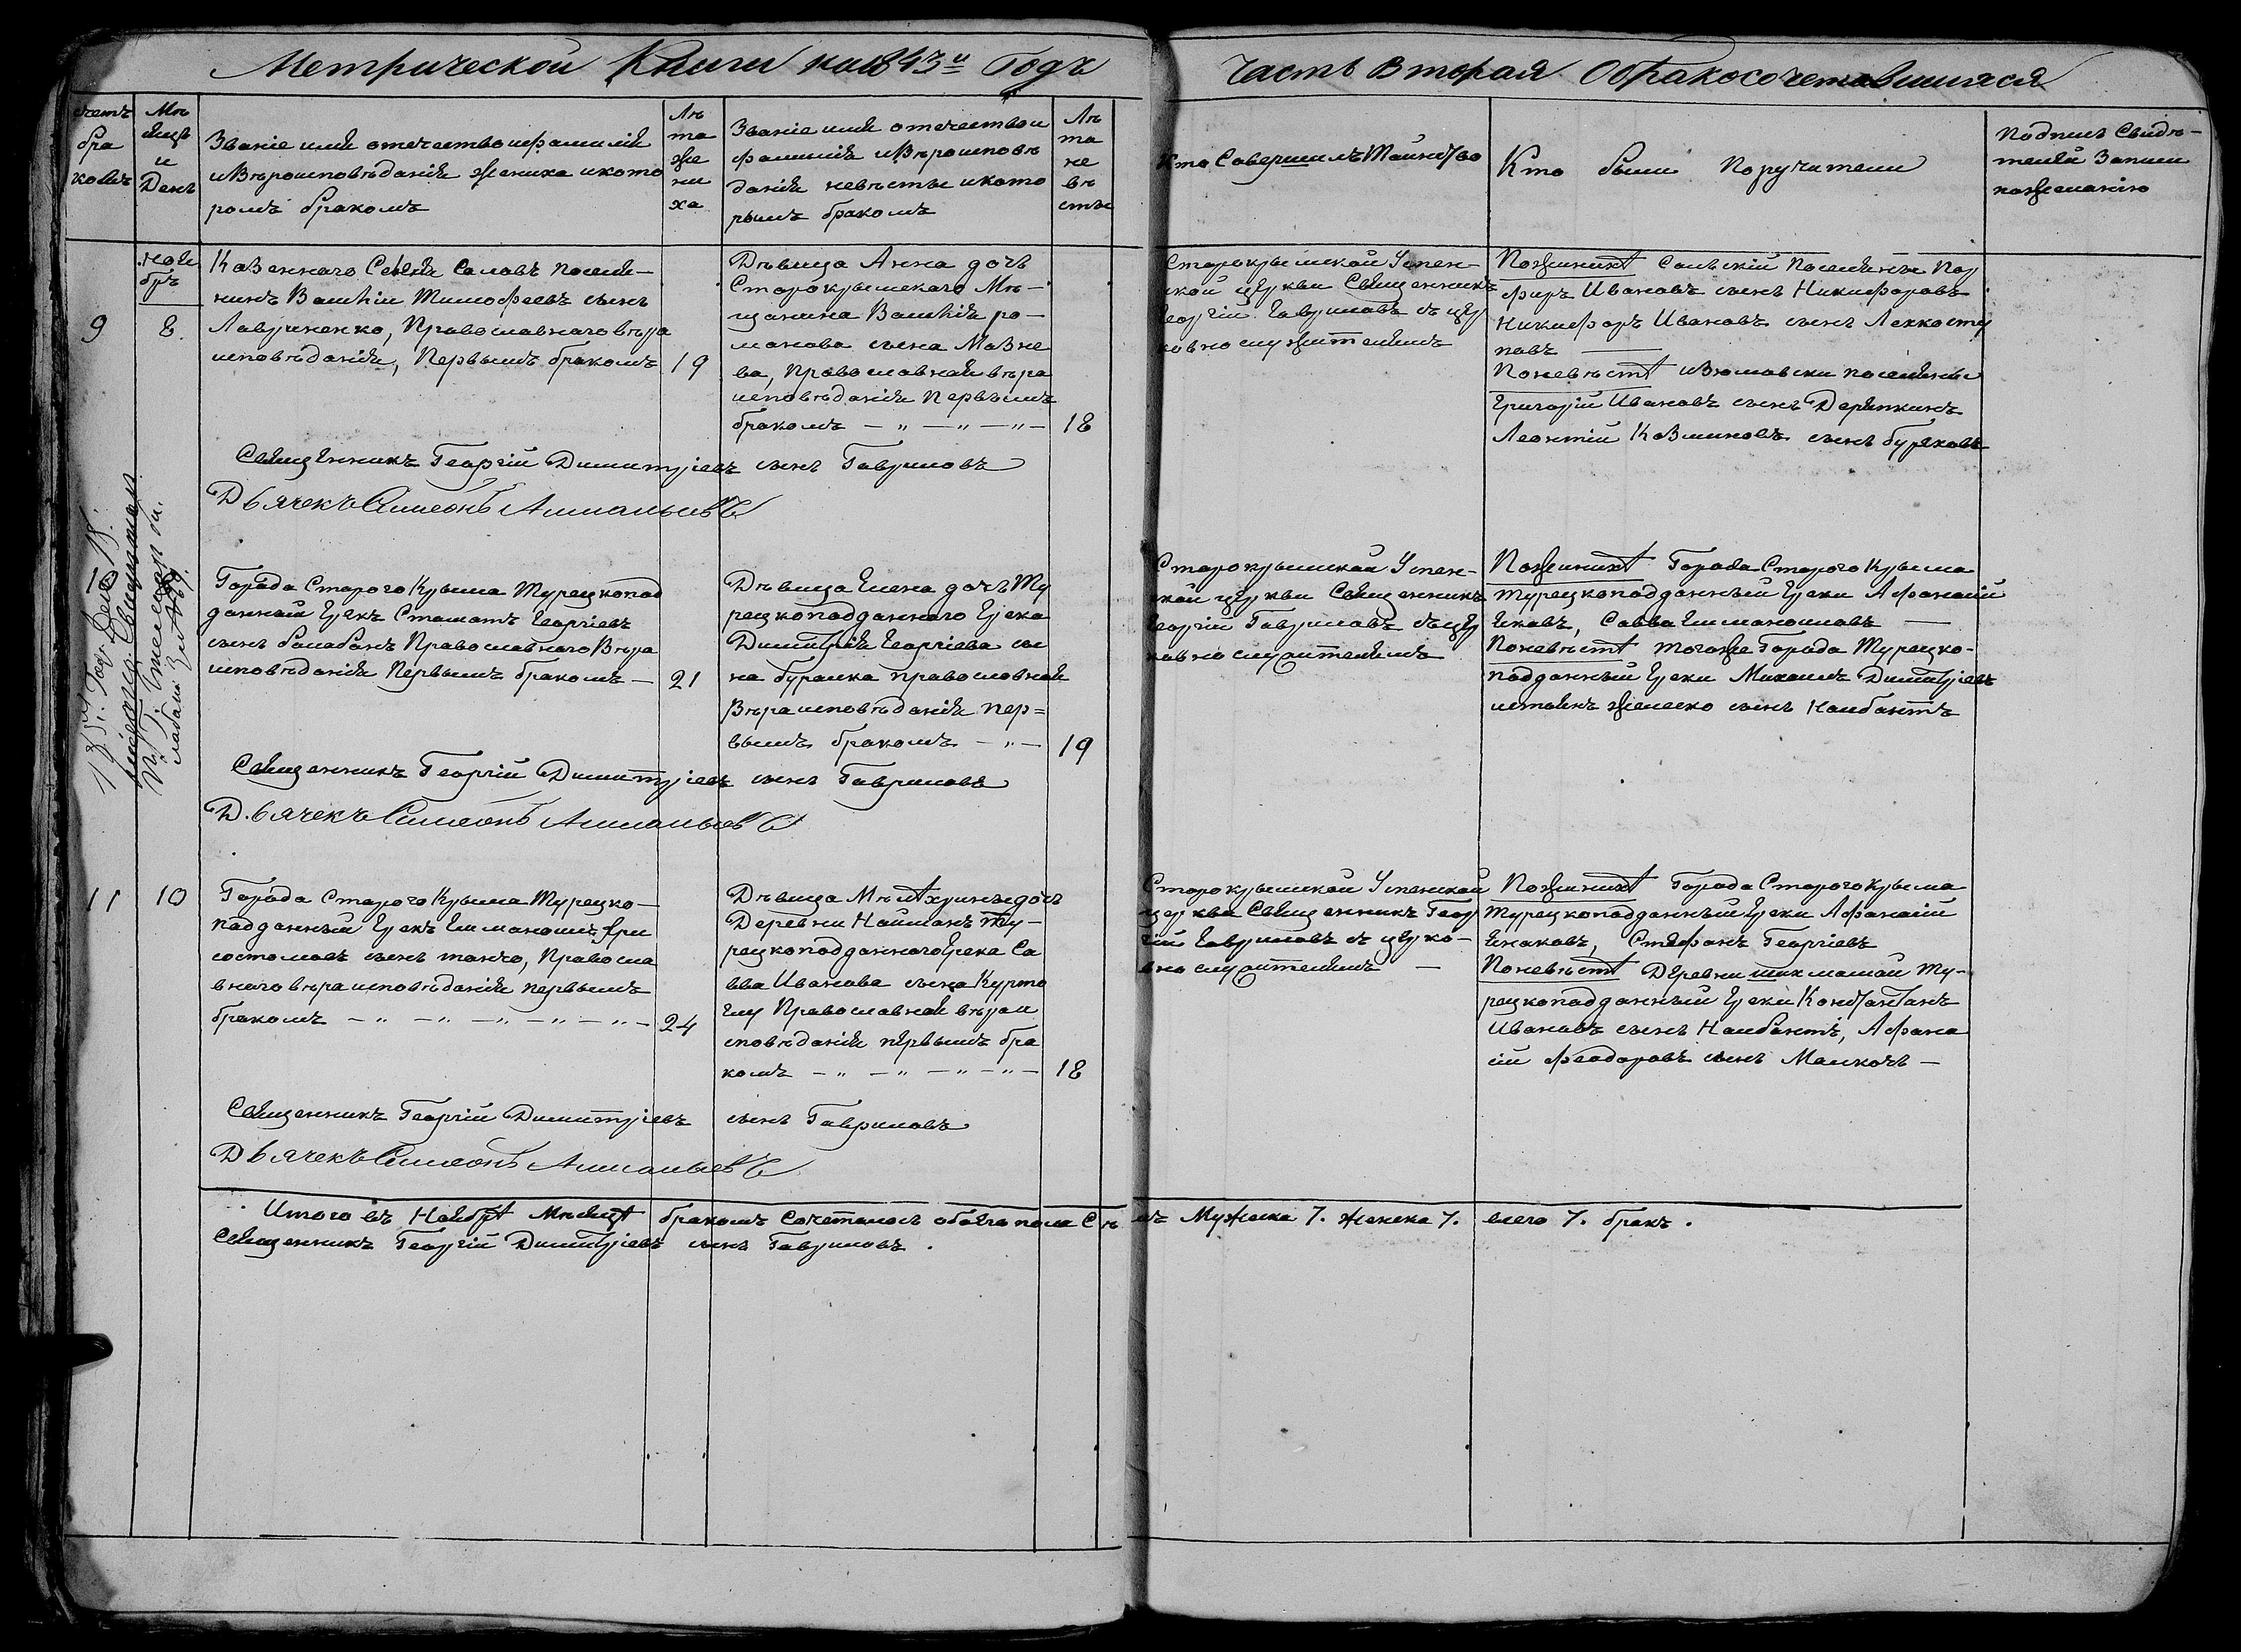 Метрической Книги на 1843й Годъ
Часть Вторая О бракосочетавшихся
Счетъ браковъ
Мѣсяцъ и День
Званіе имя отечество и фамилія
и Вѣроисповѣданія жениха и кото
рымъ бракомъ
Лѣ
та
же
ни
ха
Званіе имя отечество и
фамилія и Вѣроисповѣ
данія невѣсты и кото
рымъ бракомъ
Лѣ
та
не
вѣ
сты
Кто Совершилъ Таинство
Кто были Поручители
Подпись Свидѣ-
телей Записи
по желанію
Ноя
брь
9
8.
Казеннаго Селенія Саловъ поселя-
нинъ Василій Тимофеевъ сынъ
Лавриненко, Православнаго вѣра
исповѣданія, Первымъ бракомъ
19
Дѣвица Анна дочь
Старокрымскаго Мѣ-
щанина Василія ро-
манова сына Мазне
ва, Православнай вѣра
исповѣданія Первымъ
бракомъ — „ — „ — „ —
18
Старокрымской Успен-
ской церкви Священникъ
Георгій Гавриловъ съ цер
ковно служителямъ
По женихѣ Сальскій Поселянъ Пор
фиръ Ивановъ сынъ Никифоровъ
Никифоръ Ивановъ сынъ Леккосту
повъ —
По невѣстѣ Изюмовски поселяны
Григорій Ивановъ сынъ Дерипкинъ
Леонтій Козминовъ сынъ Буряковъ
Священникъ Георгій Димитріевъ сынъ Гавриловъ
Дьячекъ Симеонъ
10
Города Старого Крыма Турецкопод
данный Грекъ Стаматъ Георгіевъ
сынъ балабанъ Православнаго Вѣра
исповѣданія Первымъ бракомъ —
21
Дѣвица Елена дочь Ту
рецкоподданнаго Грека
Димитрія Георгіева сы
на буралка православнай
Вѣра исповѣданія пер=
вымъ бракомъ — „ —
19
Старокрымской Успен-
ской церкви Священникъ
Георгій Гавриловъ съ цер
ковно служителямъ
По женихѣ Города Старого Крыма
турецкоподданный Греки Афанасій
Саввa Еммануиловъ —
По невѣстѣ тогоже Города Турецко-
подданный Греки Михаилъ Димитріевъ
сынъ Налбантъ
Священникъ Георгій Димитріевъ сынъ Гавриловъ
Дьячекъ Симеонъ
11
10
Города Старого Крыма Турецко-
подданный Грекъ Еммануилъ Хри
состомовъ сынъ танчо, Правосла
внаго вѣра исповѣданія первымъ
бракомъ — „ — „ — „ — „ — „ —
24
Дѣвица дочь
Деревни Найманъ Ту-
рецкоподданнаго Грека Са
вва Иванова сына Курто
глу Православнай вѣра и
сповѣданія первымъ бра
комъ — „ — „ — „ — „ —
18
Старокрымской Успенской
церкви Священникъ Геор
гій Гавриловъ съ церко-
вно служителямъ —
По женихѣ Города Старого Крыма
Турецкоподданный Греки Афанасій
Стефанъ Георгіевъ
По невѣстѣ Деревни шихмамай Ту-
рецкоподданный Греки Константанъ
Ивановъ сынъ Налбантъ, Афана
сій Феодоровъ сынъ Малкочъ —
Священникъ Георгій Димитріевъ сынъ Гавриловъ
Дьячекъ Симеонъ
Итого въ Ноябрѣ Мѣсяцѣ бракомъ Сочеталось обоего пола Съ мъ Мужеска 7. Женска 7. всего 7. бракъ.
Священникъ Георгій Димитріевъ сынъ Гавриловъ.